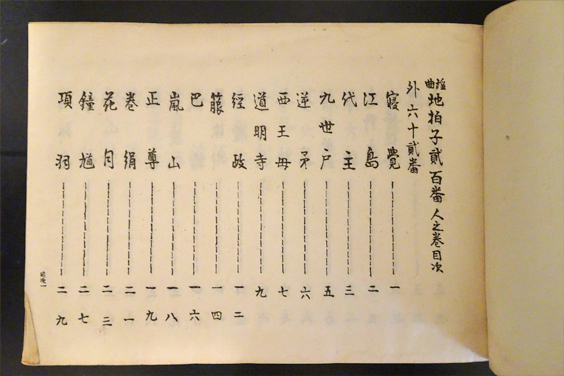 謡曲地拍子貳百番 人之巻目次
外六十貳番
寝覺 一
江島 二
代主 三
九世戸 五
逆矛 六
西王母 七
道明寺 九
経政 一二
籐 一四
巴 一六
嵐山 一八
正尊 一九
巻絹 二一
花月 二三
鐘馗 二七
項羽 二九